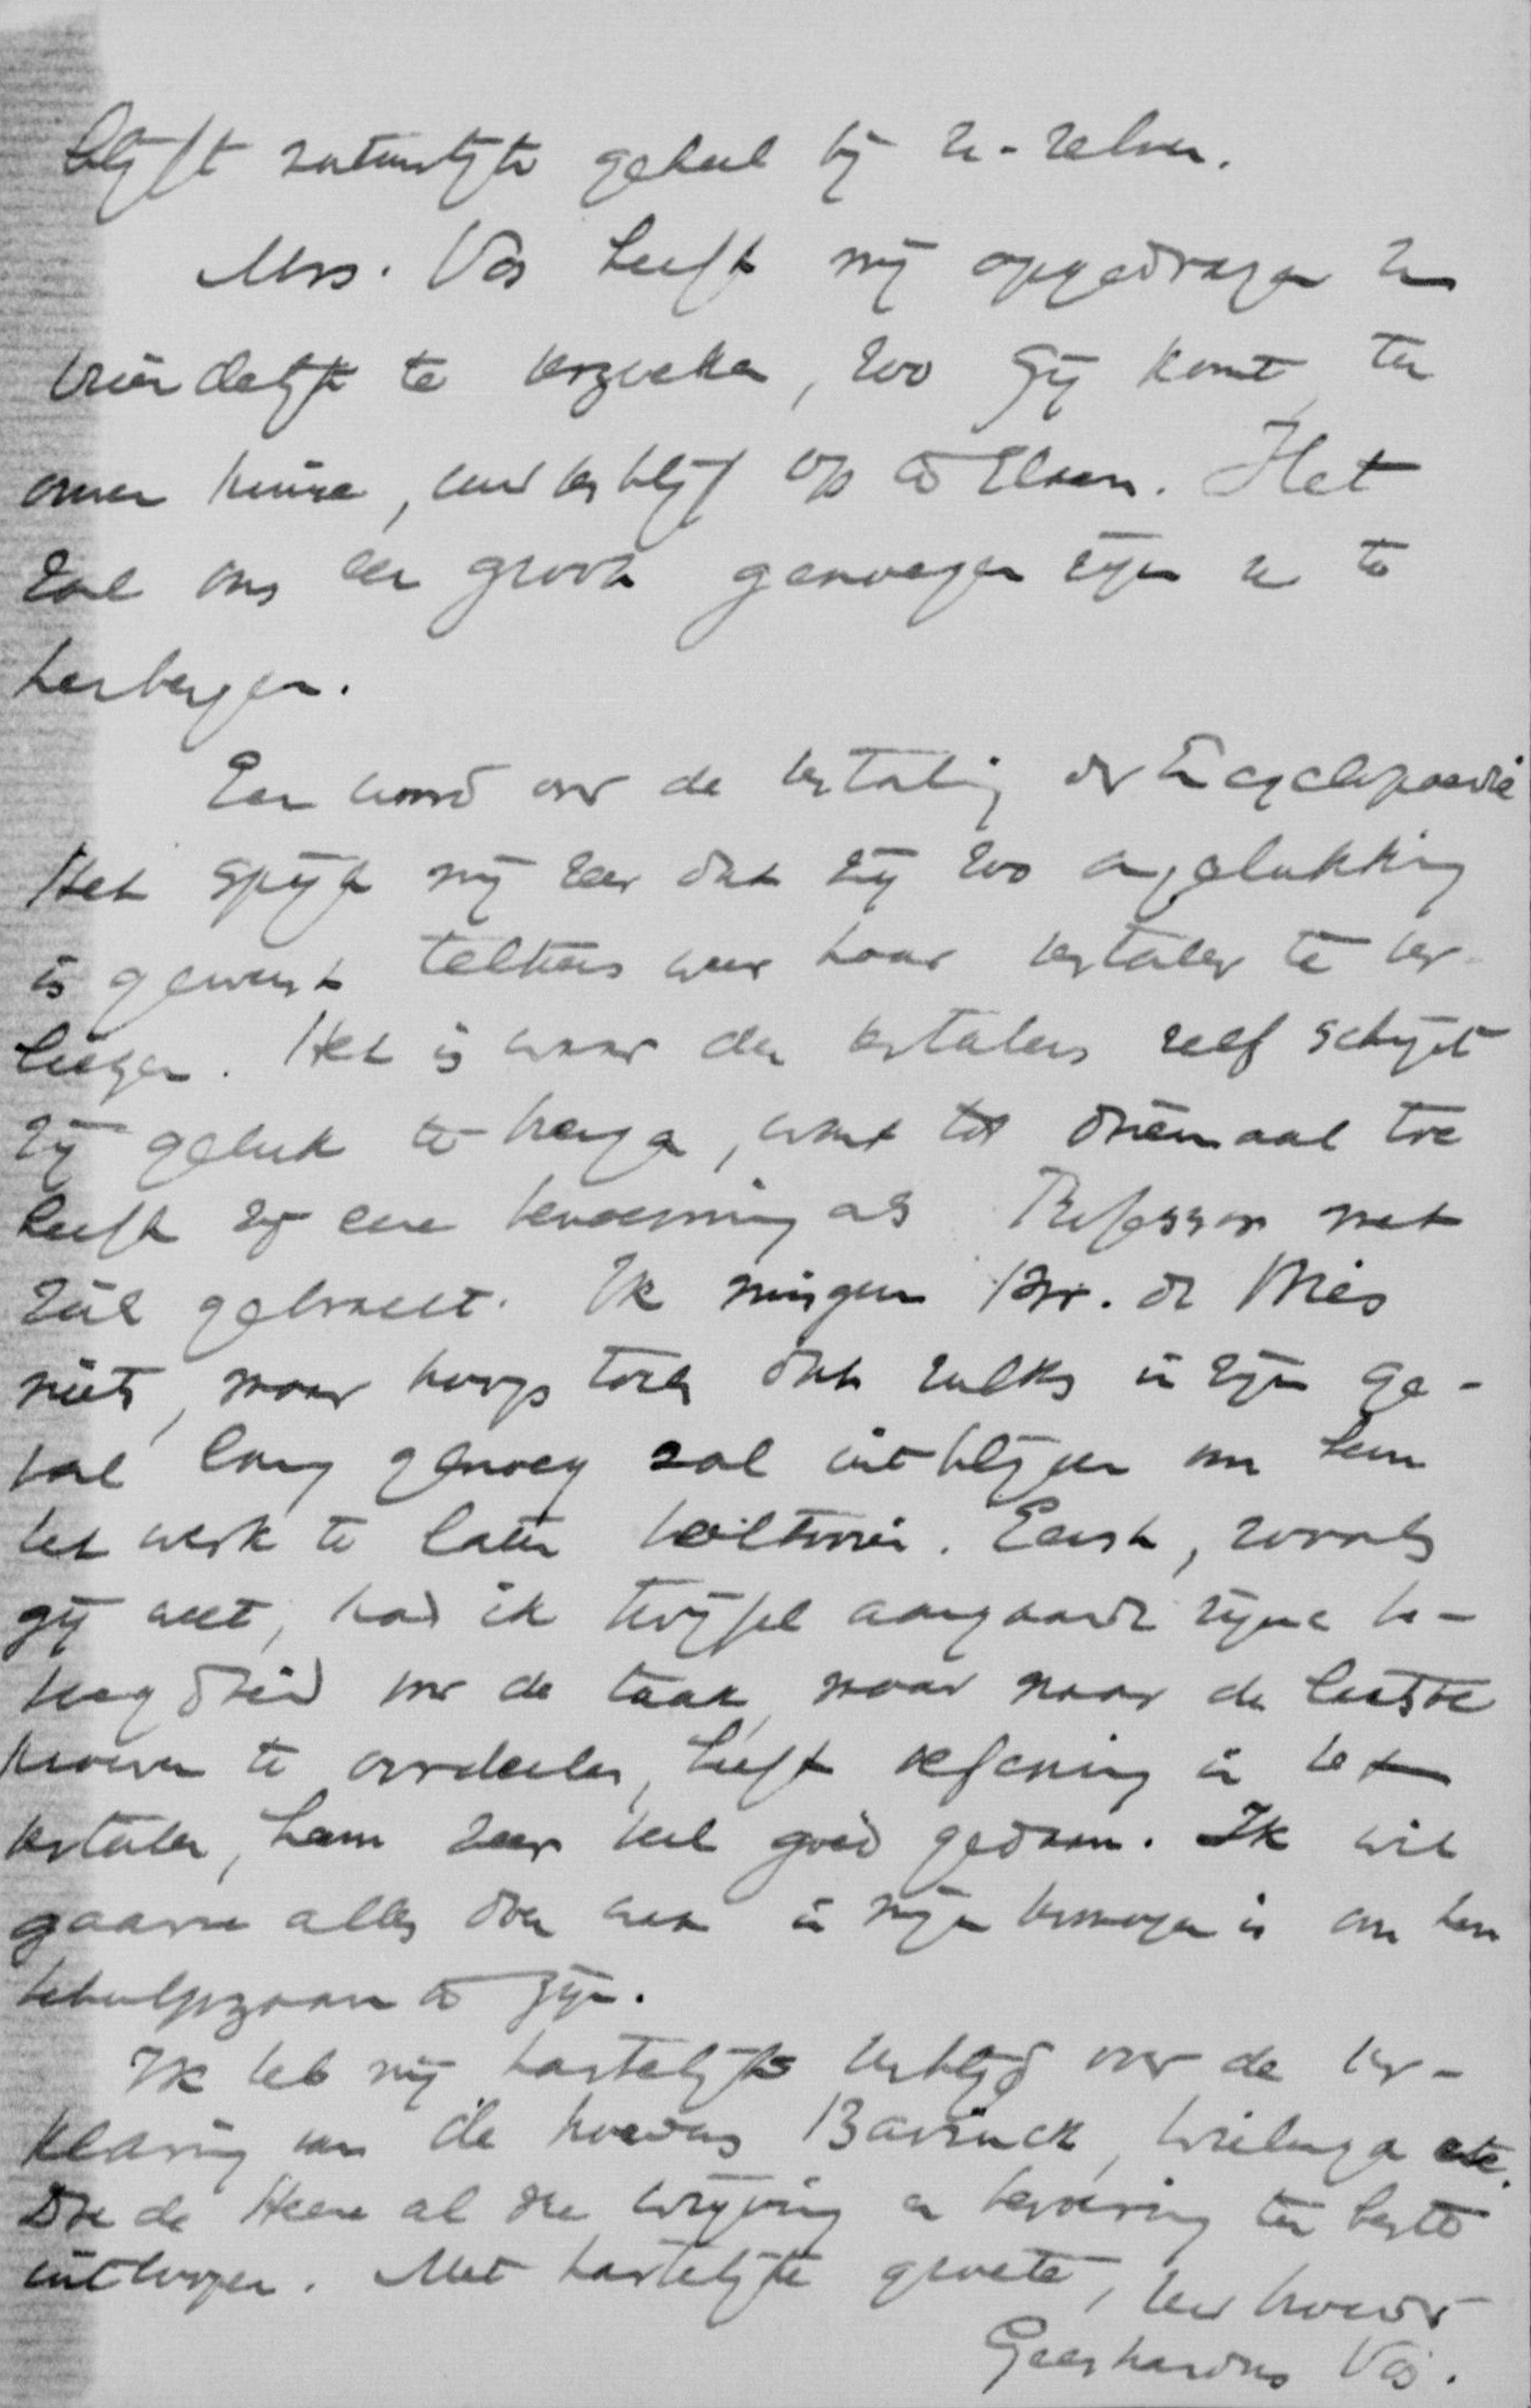 blijft natuurlijk geheel bij u-zelven.
Mrs. Vos heeft mij opgedragen u
vriendelijk te verzoeken, zoo gij komt, ten
onzen huize, uw verblijf op te slaan. Het
zal ons een groot genoegen zijn u te
herbergen.
Een woord over de vertaling der Encyclopaedie
Het spijt mij zeer dat zij zoo ongelukkig
is geweest telkens weer haar vertaler te ver-
liezen. Het is waar den vertalers zelf schijnt
zij geluk te brengen, want tot driemaal toe
heeft zij eene benoeming als Professor met
zich gebracht. Ik misgun Br. de Vries
niets, maar hoop toch dat zulks in zijn ge-
val lang genoeg zal uitblijven om hem
het werk te laten voltooien. Eerst, zooals
gij weet, had ik twijfel aangaande zijne be-
voegdheid voor de taak, maar naar de laatste
proeven te oordeelen, heeft oefening in het
vertalen, hem zeer veel goed gedaan. Ik wil
gaarne alles doen wat in mijn vermogen is om hem
behulpzaam te zijn.
Ik heb mij hartelijk verblijd over de ver-
klaring van de broeders Bavinck, Wielenga etc.
Doe de Heere al die wrijving en beroering ten beste
uitloopen. Met hartelijke groete, Uw broeder
Geerhardus Vos.